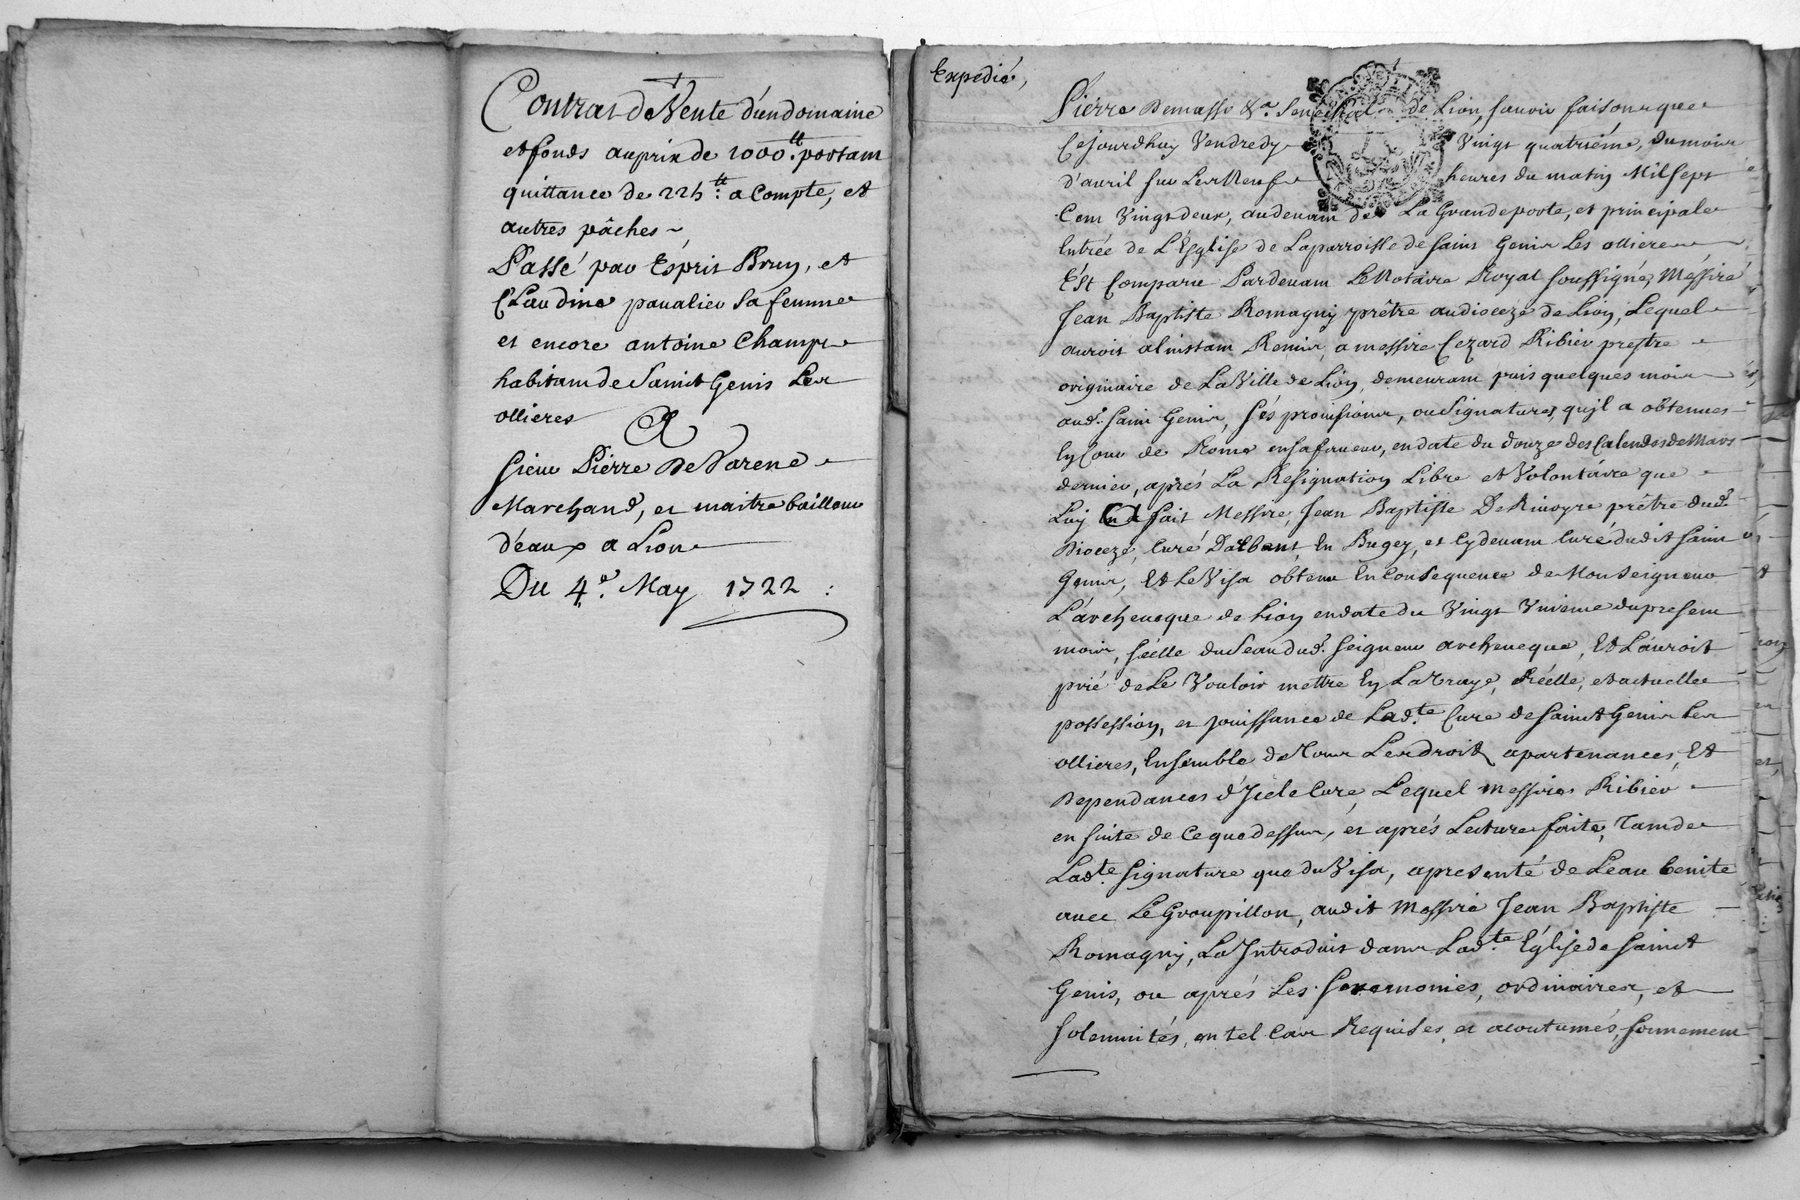 Contrat de Vente d'un domaine
et fonds au prix de 1000.tt portant
quittance de 225.tt a Compte, et
autres pâches ~
Passé par Esprit Brun, et
Claudine pavalier Sa femme
et encore antoine Champt
habitans de Sainct Genis Les
ollieres
A
Sieur Pierre De Varene
Marchand, et maitre bailleur
d'eaux a Lion
Du 4.e May 1722 :
Expedié,
Pierre Demasso &a. Senechal de Lion, Savoir faisons que
Cejourdhuy Vendredy Vingt quatriéme, du mois
d'avril sur Les Neuf heures du matin Mil Sept
Cent Vingt deux, audevant de La Grande porte, et principale
Entrée de L'Eglise de La parroisse de Saint Genis Les ollieres
Est Comparu Pardevant Le Notaire Royal Soussigné, Messire
Jean Baptiste Romagny prêtre au dioceze de Lion, Lequel
auroit a l'instant Remis, a messire Cezard Ribier prestre
originaire de La Ville de Lion, demeurant puis quelques mois
aud. Saint Genis, Ses provisions, ou Signatures, qu'il a obtenues
En Cour de Rome en sa faveur, en date du douze des Calendes de Mars
dernier, aprés La Resignation Libre et Volontaire que
Luy En a fait Messire, Jean Baptiste De Rivoyre prêtre dud.
Dioceze, Curé D'albant, En Bugey, et Cy devant Curé dudit Saint
Genis, Et Le Visa obtenu En Consequence de Monseigneur
L'archeveque de Lion en date du Vingt Unieme du present
mois, Scélle du Seau dud. Seigneur archeveque, Et L'auroit
prié de Le Vouloir mettre En La Vraye, Réelle, et actuelle
possession, et jouissance de Lad.te Cure de Sainct Genis Les
ollieres, Ensemble de Tous Les droits, apartenances, Et
Dependances d'Icelle Cure, Lequel messire Ribier
en Suite de Ce que dessus, et aprés Lecture faite, Tant de
Lad.te Signature que du Visa, a presenté de L'eau benite
avec Le Groupillon, audit Messire Jean Baptiste
Romagny, La Introduit dans Lad.te Eglise de Sainct
Genis, ou aprés Les Seremonies, ordinaires, et
Solemnités, en tel Cas Requises, et acoutumés, Sonnement